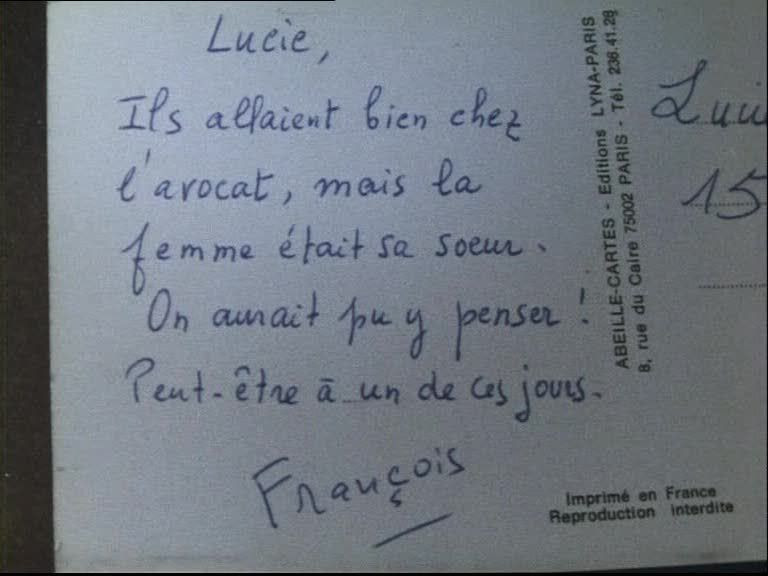 Lucie,
Ils allaient bien chez
l'avocat, mais la
femme était sa soeur.
On aurait pu y penser !
Peut-être à un de ces jours.
François
ABEILLE-CARTES - Editions LYNA-PARIS
8, rue du Caire 75002 PARIS - Tél. 236.41.28
15
Imprimé en France
Reproduction interdite